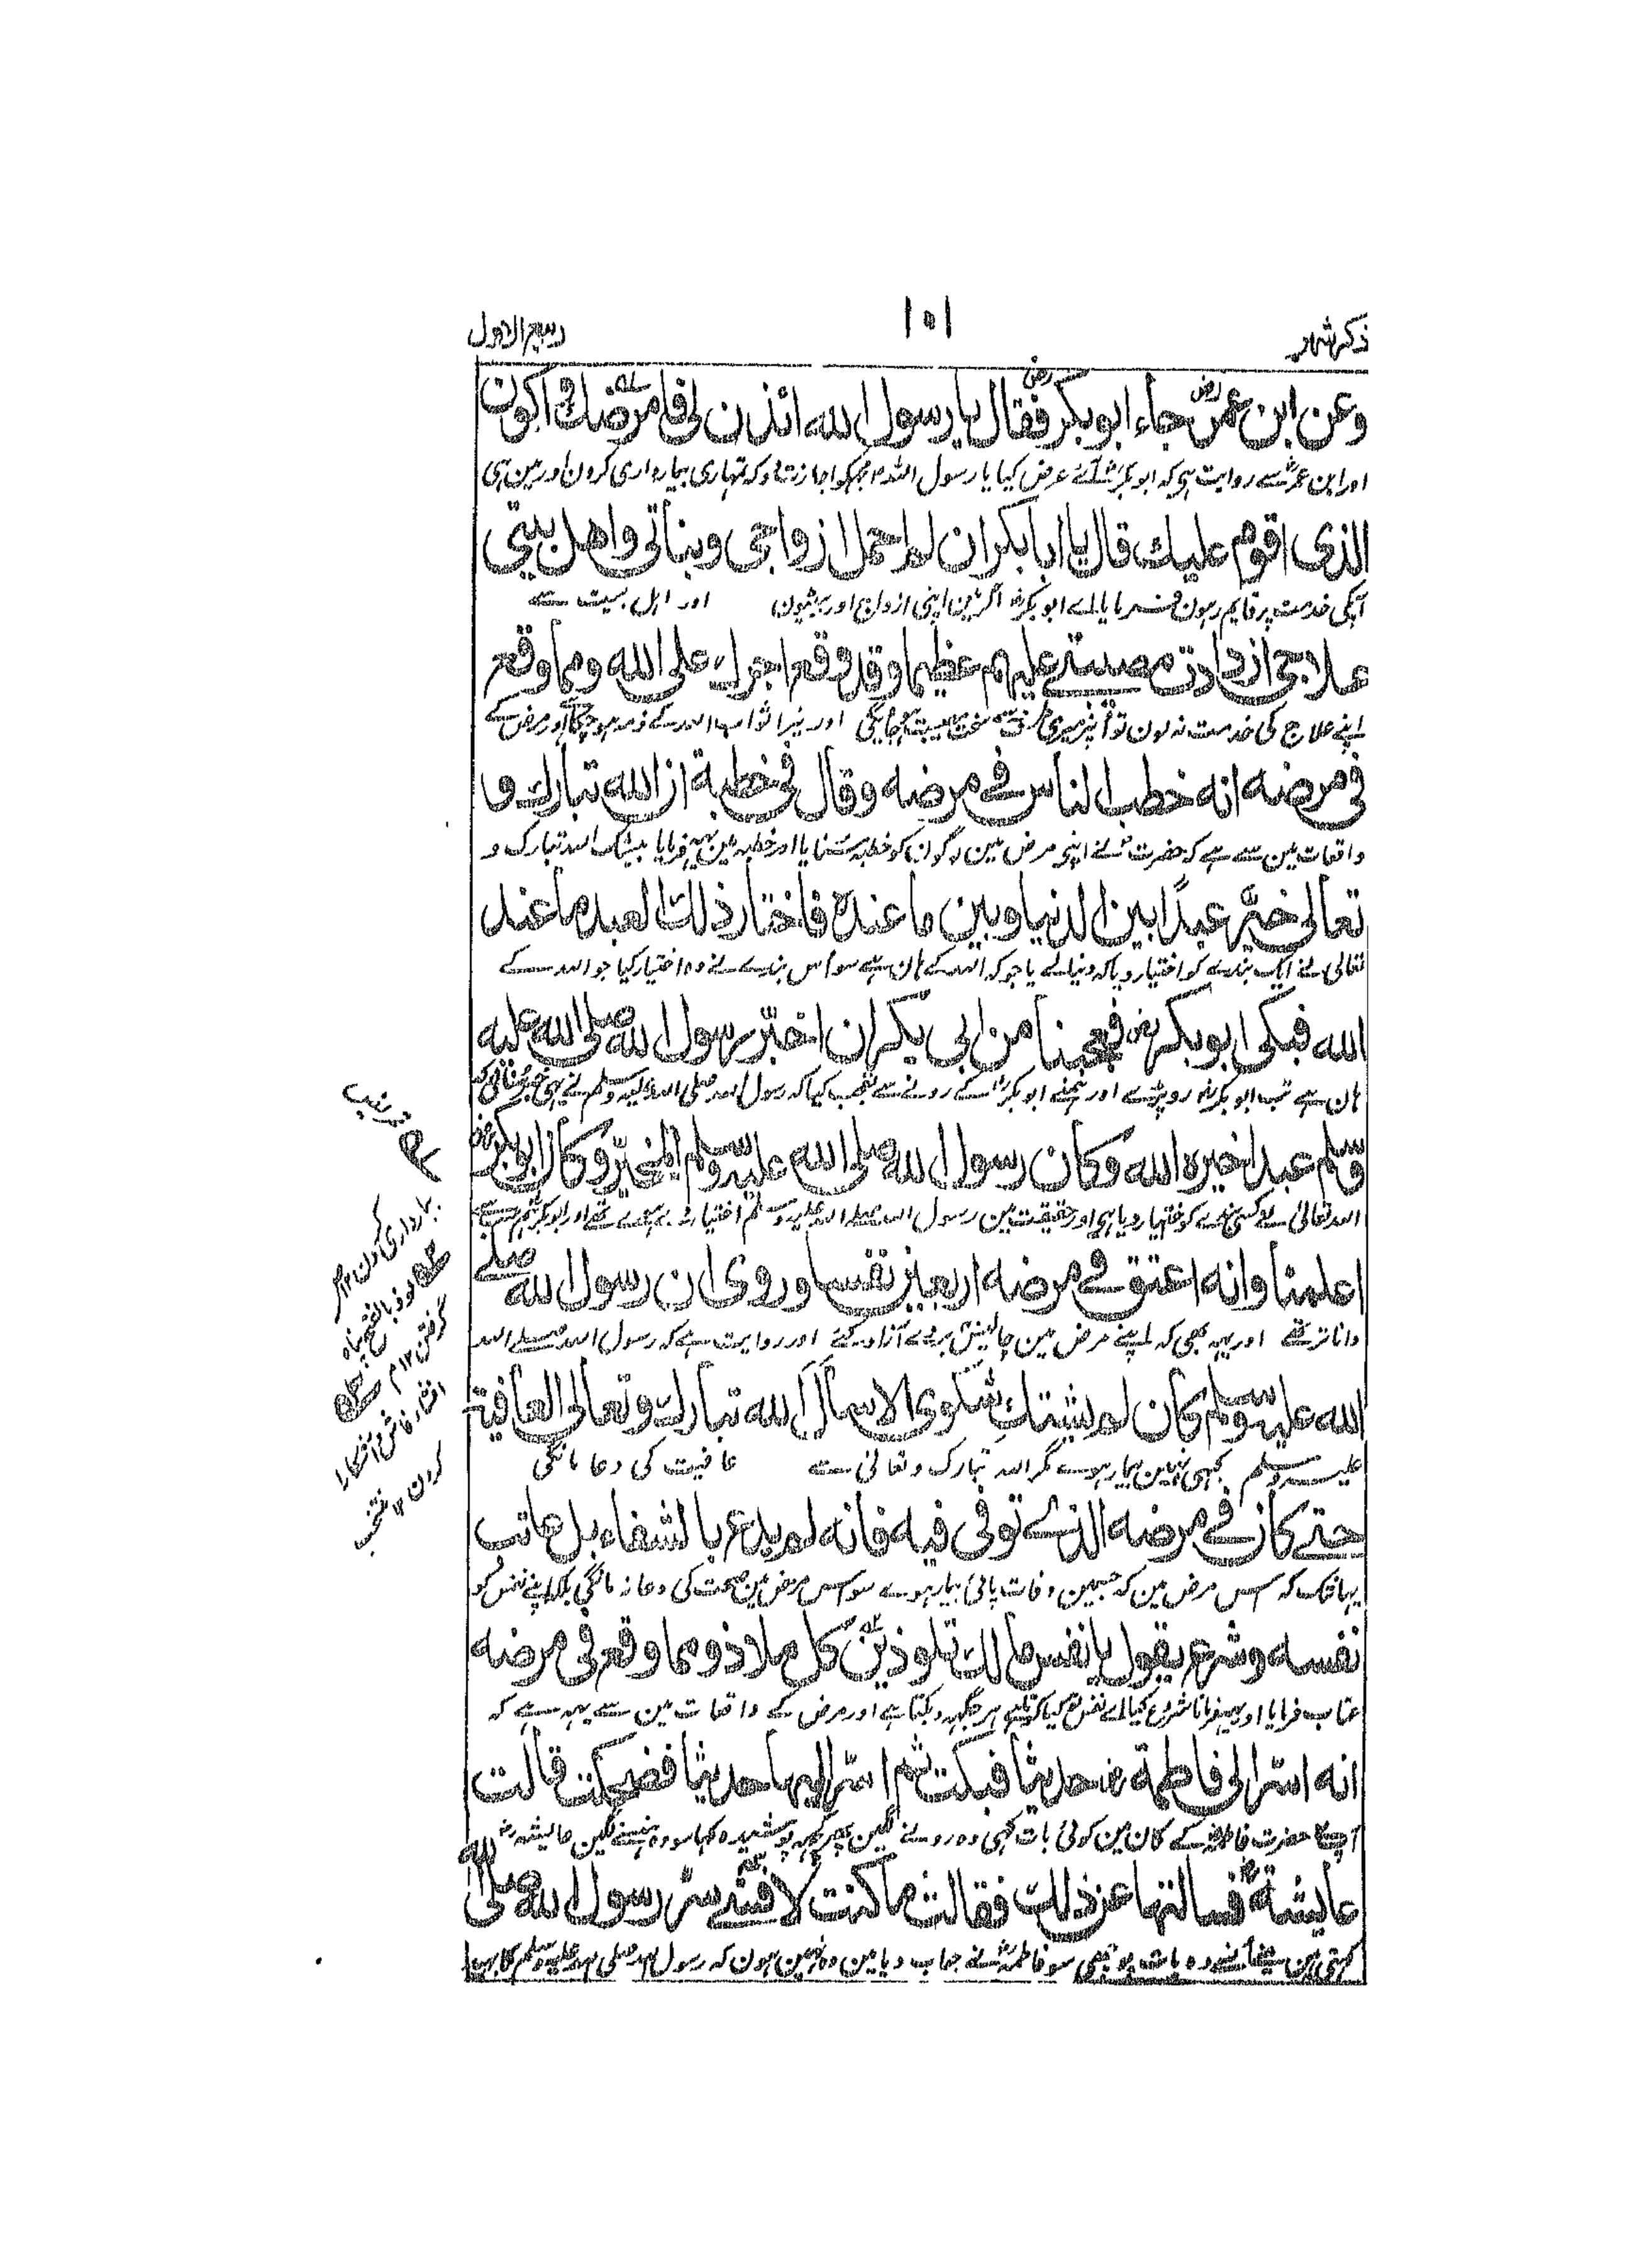 ذكر شهر
۱۵۱
ربيع الاول
وعن ابن عمر رض جاء ابوبكر رض فقال يا رسول الله ائذن لي فامرضك و اكون
اور ابن عمر سے روایت ہی کہ ابوبکر آئے عرض کیا یا رسول اللہ مجہکو اجازت دو کہ تمہاری بیمارداری کرون اور مین ہی
الذى اقوم عليك قال يا ابا بكر ان لم احمل ازواجي وبناتي واهل بيتي
آپکی خدمت پر قایم رہون فرمایا اے ابوبکر اگر مین اپنی ازواج اور بیٹیون اور اہل بیت سے
علاجي ازدادت مصيبتے عليهم عظيما وقد وقع اجرك على الله ومما وقع
اپنے علاج کی خدمت نہ لون تو میری سخت مصیبت ہو جایگی اور تیرا ثواب اللہ کے ذمہ ہوچکا اور مرض کے
في مرضه انه خطب الناس في مرضه وقال في خطبة ان الله تبارك و
واقعات مین سے ہے کہ حضرت نے اپنی مرض مین لوگون کو خطبہ سنایا اور خطبہ مین یہہ فرمایا بیشک اللہ تبارک و
تعالى خيّر عبدًا بين الدنيا وبين ما عنده فاختار ذلك العبد ما عند
تعالی نے ایک بندے کو اختیار دیا کہ دنیا لے یا جو کہ اللہ کے ہان ہے سو اس بندے نے وہ اختیار کیا جو اللہ کے
الله فبكى ابوبكر رض فعجبنا من ابي بكر ان اخبّر رسول الله صلى الله عليه
ہان ہے تب ابوبکر رو پڑے اور ہمنے ابوبکر کے رونے سے تعجب کیا کہ رسول اللہ صلی اللہ علیہ وسلم نے یہی خبر سنائی کہ
وسلم عبدا خيره الله وكان رسول الله صلى الله عليه وسلم المخيّر وكان ابوبكر رض
اللہ تعالی نے کسی بندے کو اختیار دیا ہی اور حقیقت مین رسول اللہ صلے اللہ علیہ وسلم اختیار دیے تھے اور ابوبکر ہم سب سے
اعلمنا وانه اعتق في مرضه اربعين نفسا وروى ان رسول الله صلے
دانا تر تھے اور یہہ بھی کہ اپنے مرض مین چالیس بردے آزاد کئے اور روایت ہے کہ رسول اللہ صلے اللہ
الله عليه وسلم كان لم يشتك شكوى الا سأل الله تبارك وتعالى العافية
علیہ وسلم کبہی نہین بیمار ہوے مگر اللہ تبارک و تعالی سے عافیت کی دعا مانگی
حتے كان في مرضه الذى توفى فيه فانه لم يدع بالشفاء بل عاتب
یہانتک کہ اس مرض مین کہ جسمین وفات پائی بیمار ہوے سو اس مرض مین صحت کی دعا نہ مانگی بلکہ اپنے نفس کو
نفسه وشرع يقول يا نفس مالك تلوذين كل ملاذ ومما وقع في مرضه
عتاب فرمایا اور یہہ فرمانا شروع کیا اے نفس ہر جگہہ دبکتا ہے اور مرض کے واقعات مین سے یہہ ہے کہ
انه اسّر الى فاطمة رض حديثا فبكت ثم اسّر اليها حديثا فضحكت قالت
آپنے حضرت فاطمہ کے کان مین کوئی بات کہی وہ رونے لگین پھر کچہہ پوشیدہ کہا سو وہ ہنسنے لگین عایشہ رض
عايشة رض فسالتها عن ذلك فقالت ما كنت لافشے سرّ رسول الله صلى الله
کہتی ہین مینے اونسے وہ بات پوچھی سو فاطمہ نے جواب دیا مین وہ نہین ہون کہ رسول اللہ صلی اللہ علیہ وسلم کا بہید
بیمارداری کردن
لوذ بالفتح پناہ
گرفتن ۱۲م
افشاء فاش و آشکارا
کردن ۱۲ منتخب